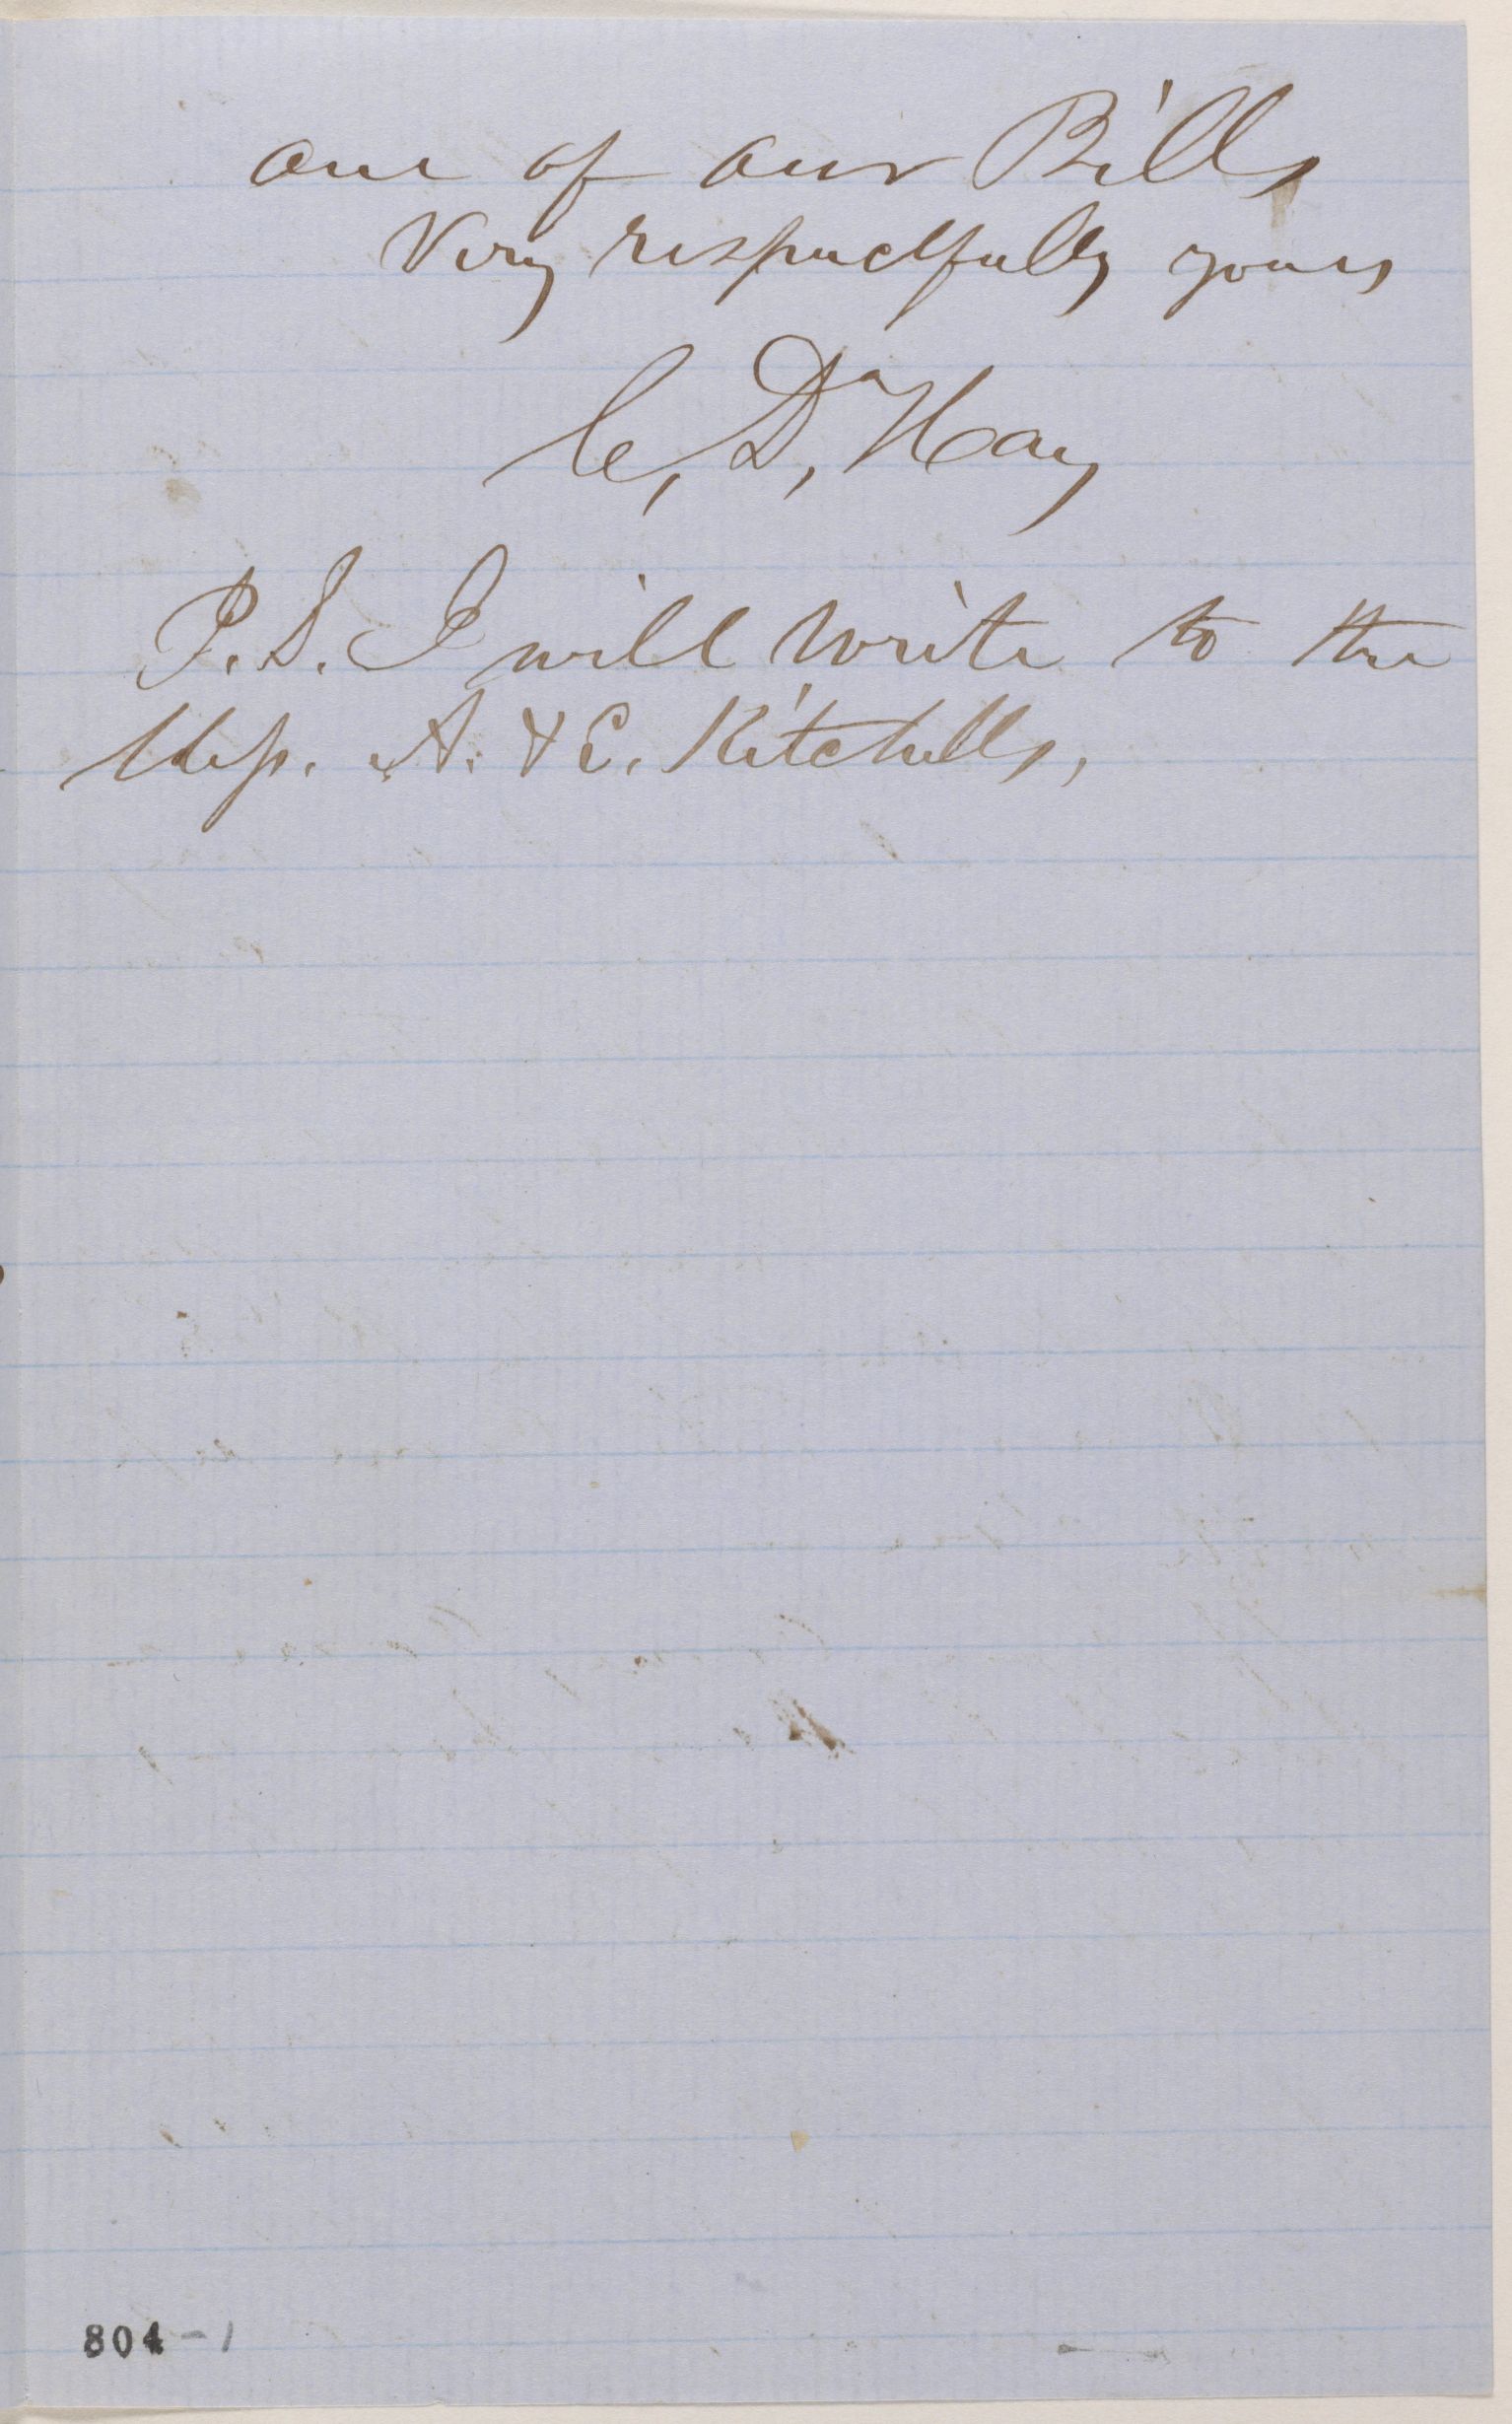 one of our Bills
Very respectfully yours
C. D. Hay
P. S. I will write to the
Mess. A. & E. Kitchells,
804-1